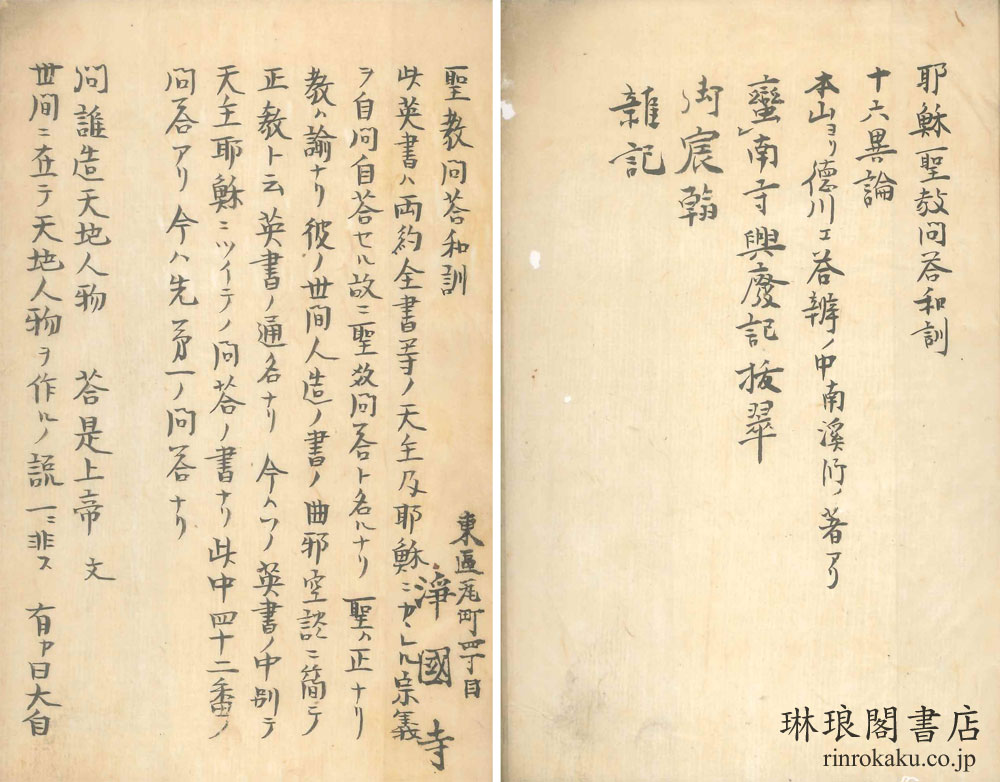 耶穌聖教問荅和訓
十六異論
本山ヨリ德川エ荅辨ノ中南溪師ノ著アリ
蠻南寺興廢記拔翠
御宸翰
雜記
琳琅閣書店
rinrokaku.co.jp
聖教問荅和訓
東區瓦町四丁目
淨國寺
此英書ハ両約全書等ノ天主及耶穌ニカヽレル宗義
ヲ自問自荅セル故ニ聖敎問荅ト名ルナリ 聖ハ正ナリ
教ハ諭ナリ彼ノ世間人造ノ書ノ曲邪空談ニ簡テ
正教ト云英書ノ通名ナリ 今ハソノ英書ノ中別テ
天主耶穌ニツイテノ問荅ノ書ナリ此中四十二番ノ
問荅アリ今ハ先第一ノ問荅ナリ
問誰造天地人物 荅是上帝 文
世間ニ在テ天地人物ヲ作ルノ説一ニ非ス 有ヤ曰大自